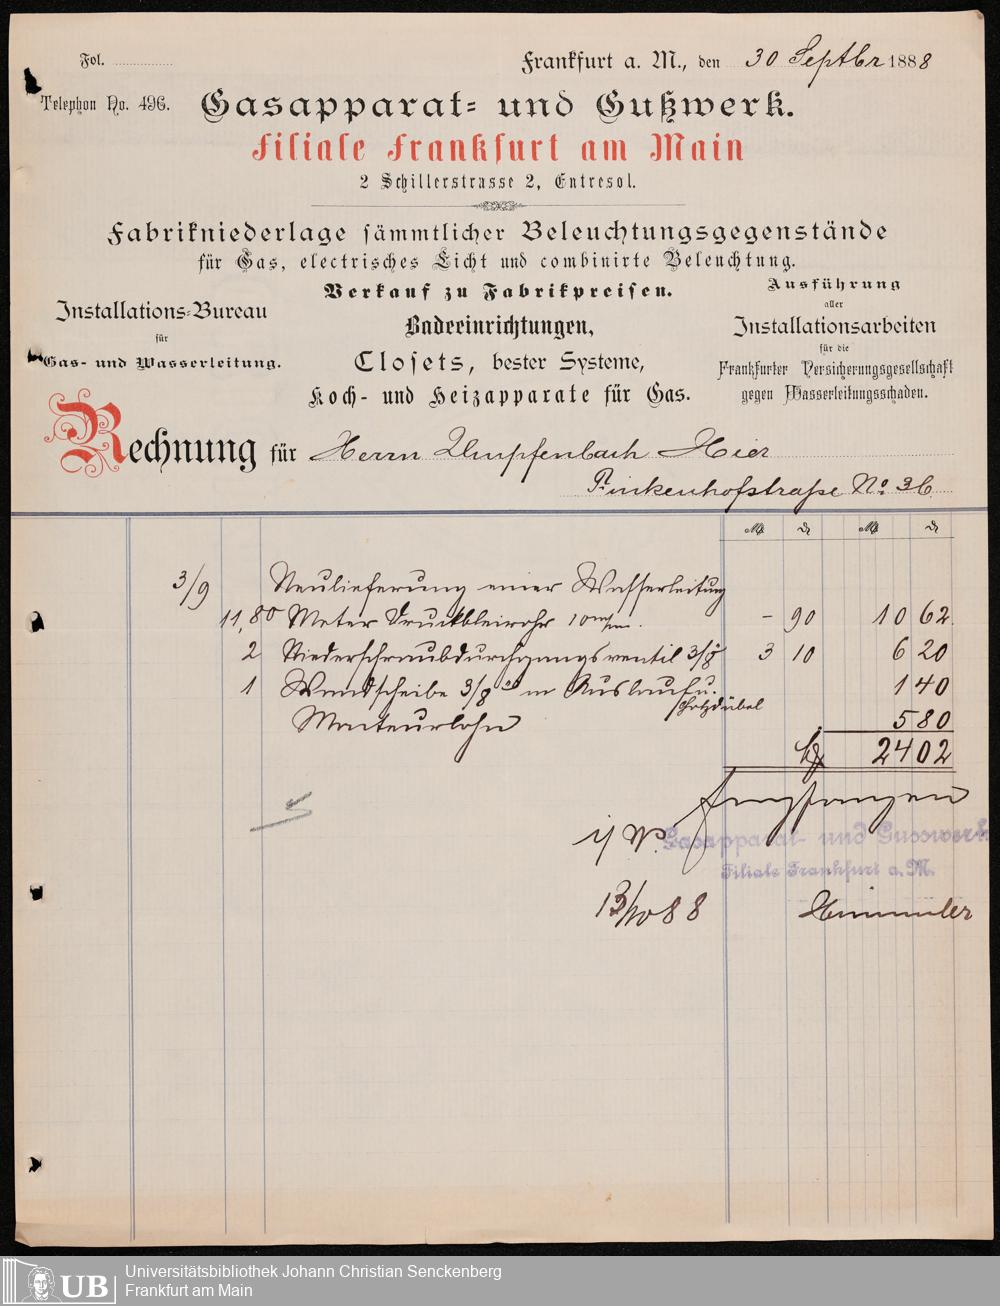 Fol.
Frankfurt a. M., den 30 Septbr 1888
Telephon No. 496.
Gasapparat- und Gußwerk.
Filiale Frankfurt am Main
2 Schillerstrasse 2, Entresol.
Fabrikniederlage sämmtlicher Beleuchtungsgegenstände
für Gas, electrisches Licht und combinirte Beleuchtung.
Verkauf zu Fabrikpreisen.
Installations-Bureau
für
Gas- und Wasserleitung.
Badeeinrichtungen,
Closets, bester Systeme,
Koch- und Heizapparate für Gas.
Ausführung
aller
Installationsarbeiten
für die
Frankfurter Versicherungsgesellschaft
gegen Wasserleitungsschaden.
Rechnung für Herrn Umpfenbach Hier
Finkenhofstraße No. 36
M d M d
3/9 Neulieferung einer Wasserleitung
11,80 Meter Druckbleirohr 10 m/m. - 90 10 62.
2 Niederschraubdurchgangsventil 3/8" 3 10 6 20
1 Wandscheibe 3/8" m Auslauf u. 1 40
Holzdübel
Monteurlohn 5 80
24 02
Empfangen
Gasapparat- und Gusswerk
Filiale Frankfurt a. M.
13/10 88 Himmler
UB
Universitätsbibliothek Johann Christian Senckenberg
Frankfurt am Main